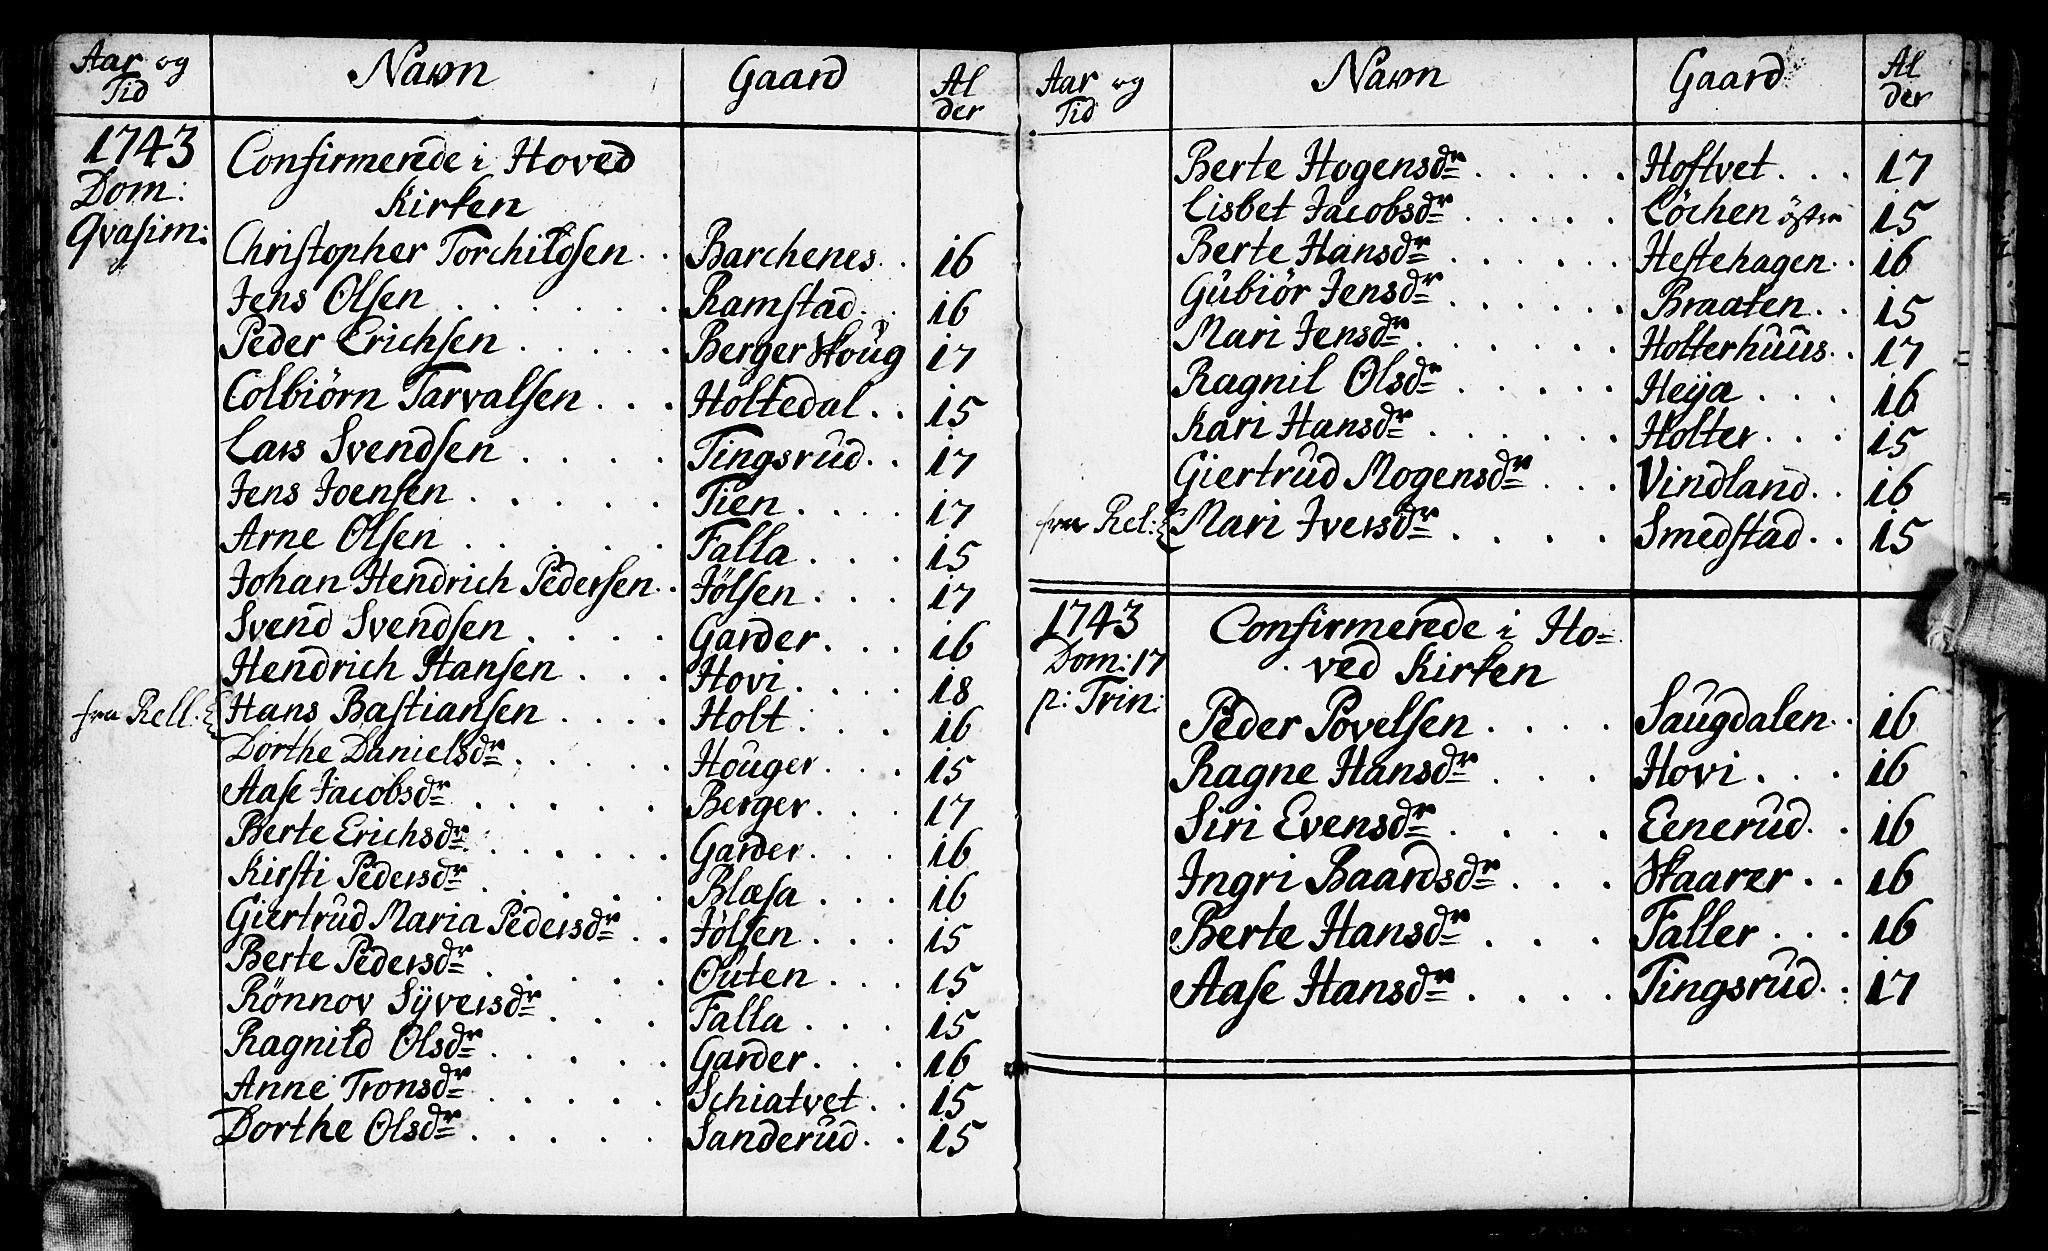 Aar og Tid Navn Gaard Alder
1743 Confirmerede i Hoved
Dom: Kirken
Qvasim: Christopher Torchildsen . . Barchenes . . 16
Jens Olsen . . . . . . Ramstad . . 16
Peder Erichsen . . . . . Berger Skoug 17
Colbiörn Tarvalsen . . . Holtedal . . 15
Lars Svendsen . . . . Tingsrud . . 17
Jens Joensen . . . . . Tien . . . . 17
Arne Olsen . . . . . Falla . . . 15
Johan Hendrich Pedersen . . Jölsen . . . 17
Svend Svendsen . . . . Garder . . . 16
Hendrich Hansen . . . Hovi . . . . 18
fra Rell: Hans Bastiansen . . . . Holt . . . 16
Dorthe Danielsdr . . . . . Houger . . . 15
Aase Jacobsdr . . . . . Berger . . . 17
Berte Erichsdr . . . . . . Garder . . . 16
Kirsti Pedersdr . . . . . Blæsa . . . 16
Giertrud Maria Pedersdr . . Jölsen . . . 15
Berte Pedersdr . . . . . Outen . . . 15
Rönnov Syversdr . . . Falla . . . 15
Ragnild Olsdr . . . . . Garder . . . 16
Anne Tronsdr . . . . . Schiatvet . . 15
Dorthe Olsdr . . . . . Sanderud . . 15
Aar og Tid Navn Gaard Alder
Berte Hogensdr . . . . . Hoftvet . . . 17
Lisbet Jacobsdr . . . . . Löchen östre 15
Berte Hansdr . . . . . . Hestehagen . . 16
Gubiör Jensdr . . . . . . Braaten . . 15
Mari Jensdr . . . . . . Holterhuus . . 17
Ragnil Olsdr . . . . . Heija . . . 16
Kari Hansdr . . . . . . Holter . . . 15
Giertrud Mogensdr . . . Vindland . . 16
fra Rel: Mari Iversdr . . . . Smedstad . . 15
1743 Confirmerede i Ho=
Dom: 17 ved Kirken
p: Trin: Peder Povelsen . . . . Saugdalen . . 16
Ragne Hansdr . . . Hovi . . . 16
Siri Evensdr . . . . Eenerud . . 16
Ingri Baardsdr . . . Skaarer . . 16
Berte Hansdr . . . Faller . . . 16
Aase Hansdr . . . . Tingsrud . . 17